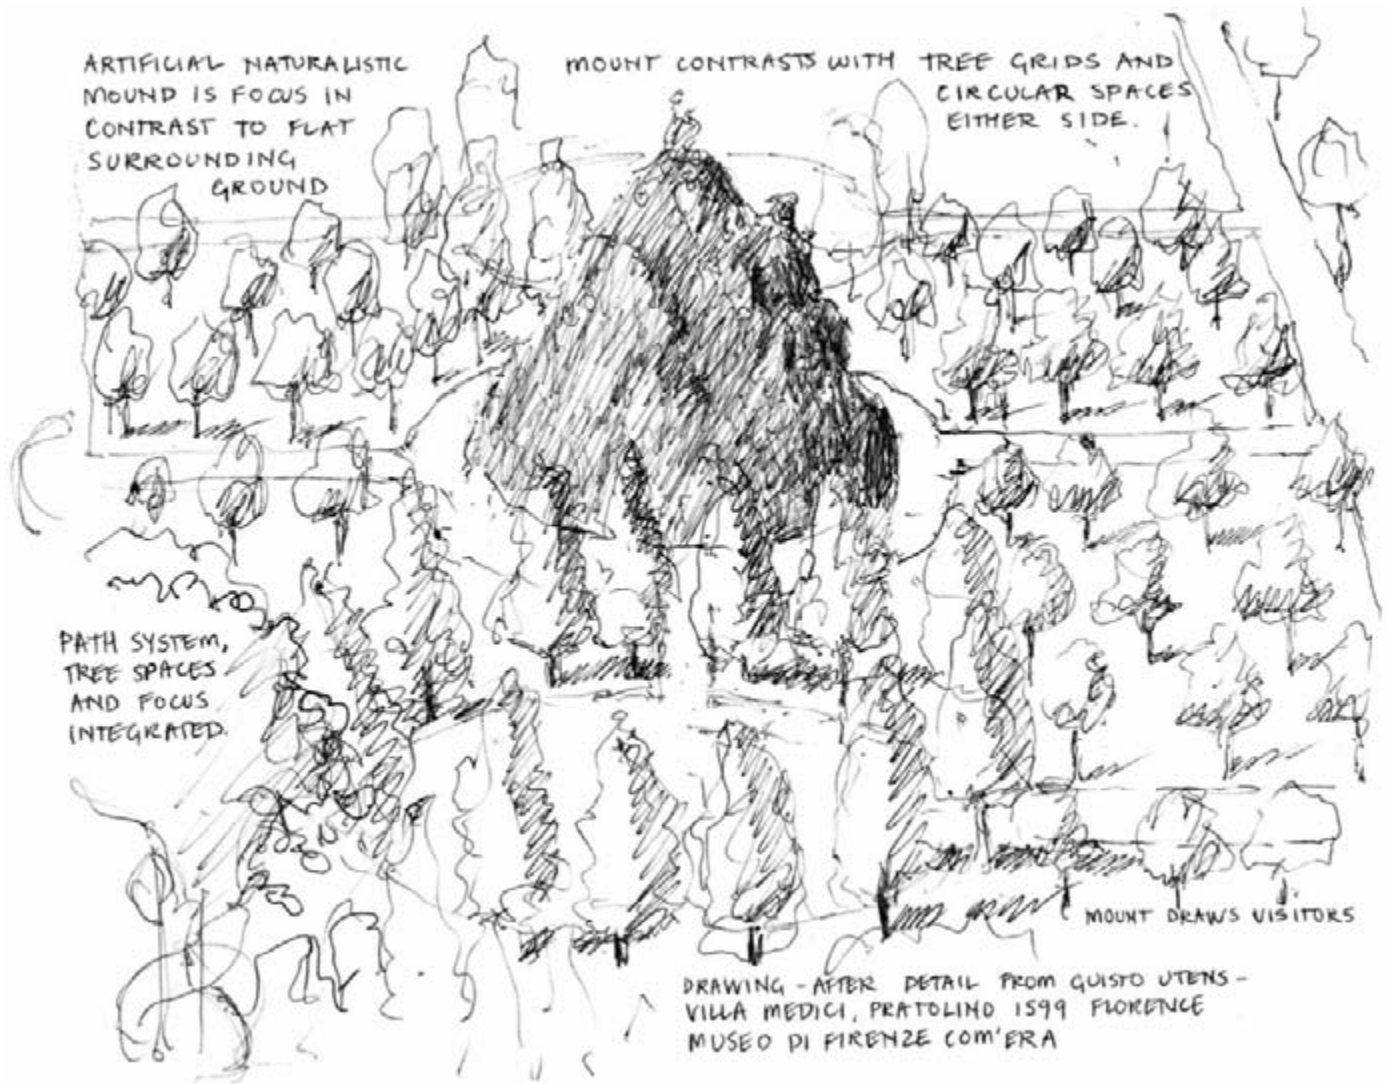 ARTIFICIAL NATURALISTIC
MOUND IS FOCUS IN
CONTRAST TO FLAT
SURROUNDING
GROUND
MOUNT CONTRASTS WITH TREE GRIDS AND
CIRCULAR SPACES
EITHER SIDE.
PATH SYSTEM,
TREE SPACES
AND FOCUS
INTEGRATED.
MOUNT DRAWS VISITORS
DRAWING - AFTER DETAIL FROM GUISTO UTENS -
VILLA MEDICI, PRATOLINO 1599 FLORENCE
MUSEO DI FIRENZE COM'ERA